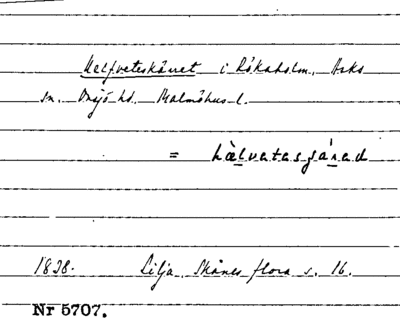 Helfveteskärret i Rökaholm, Asks
sn. Onsjö hd. Malmöhus l.
= hälvatas
1838. Lilja, Skånes flora s. 16.
Nr 5707.